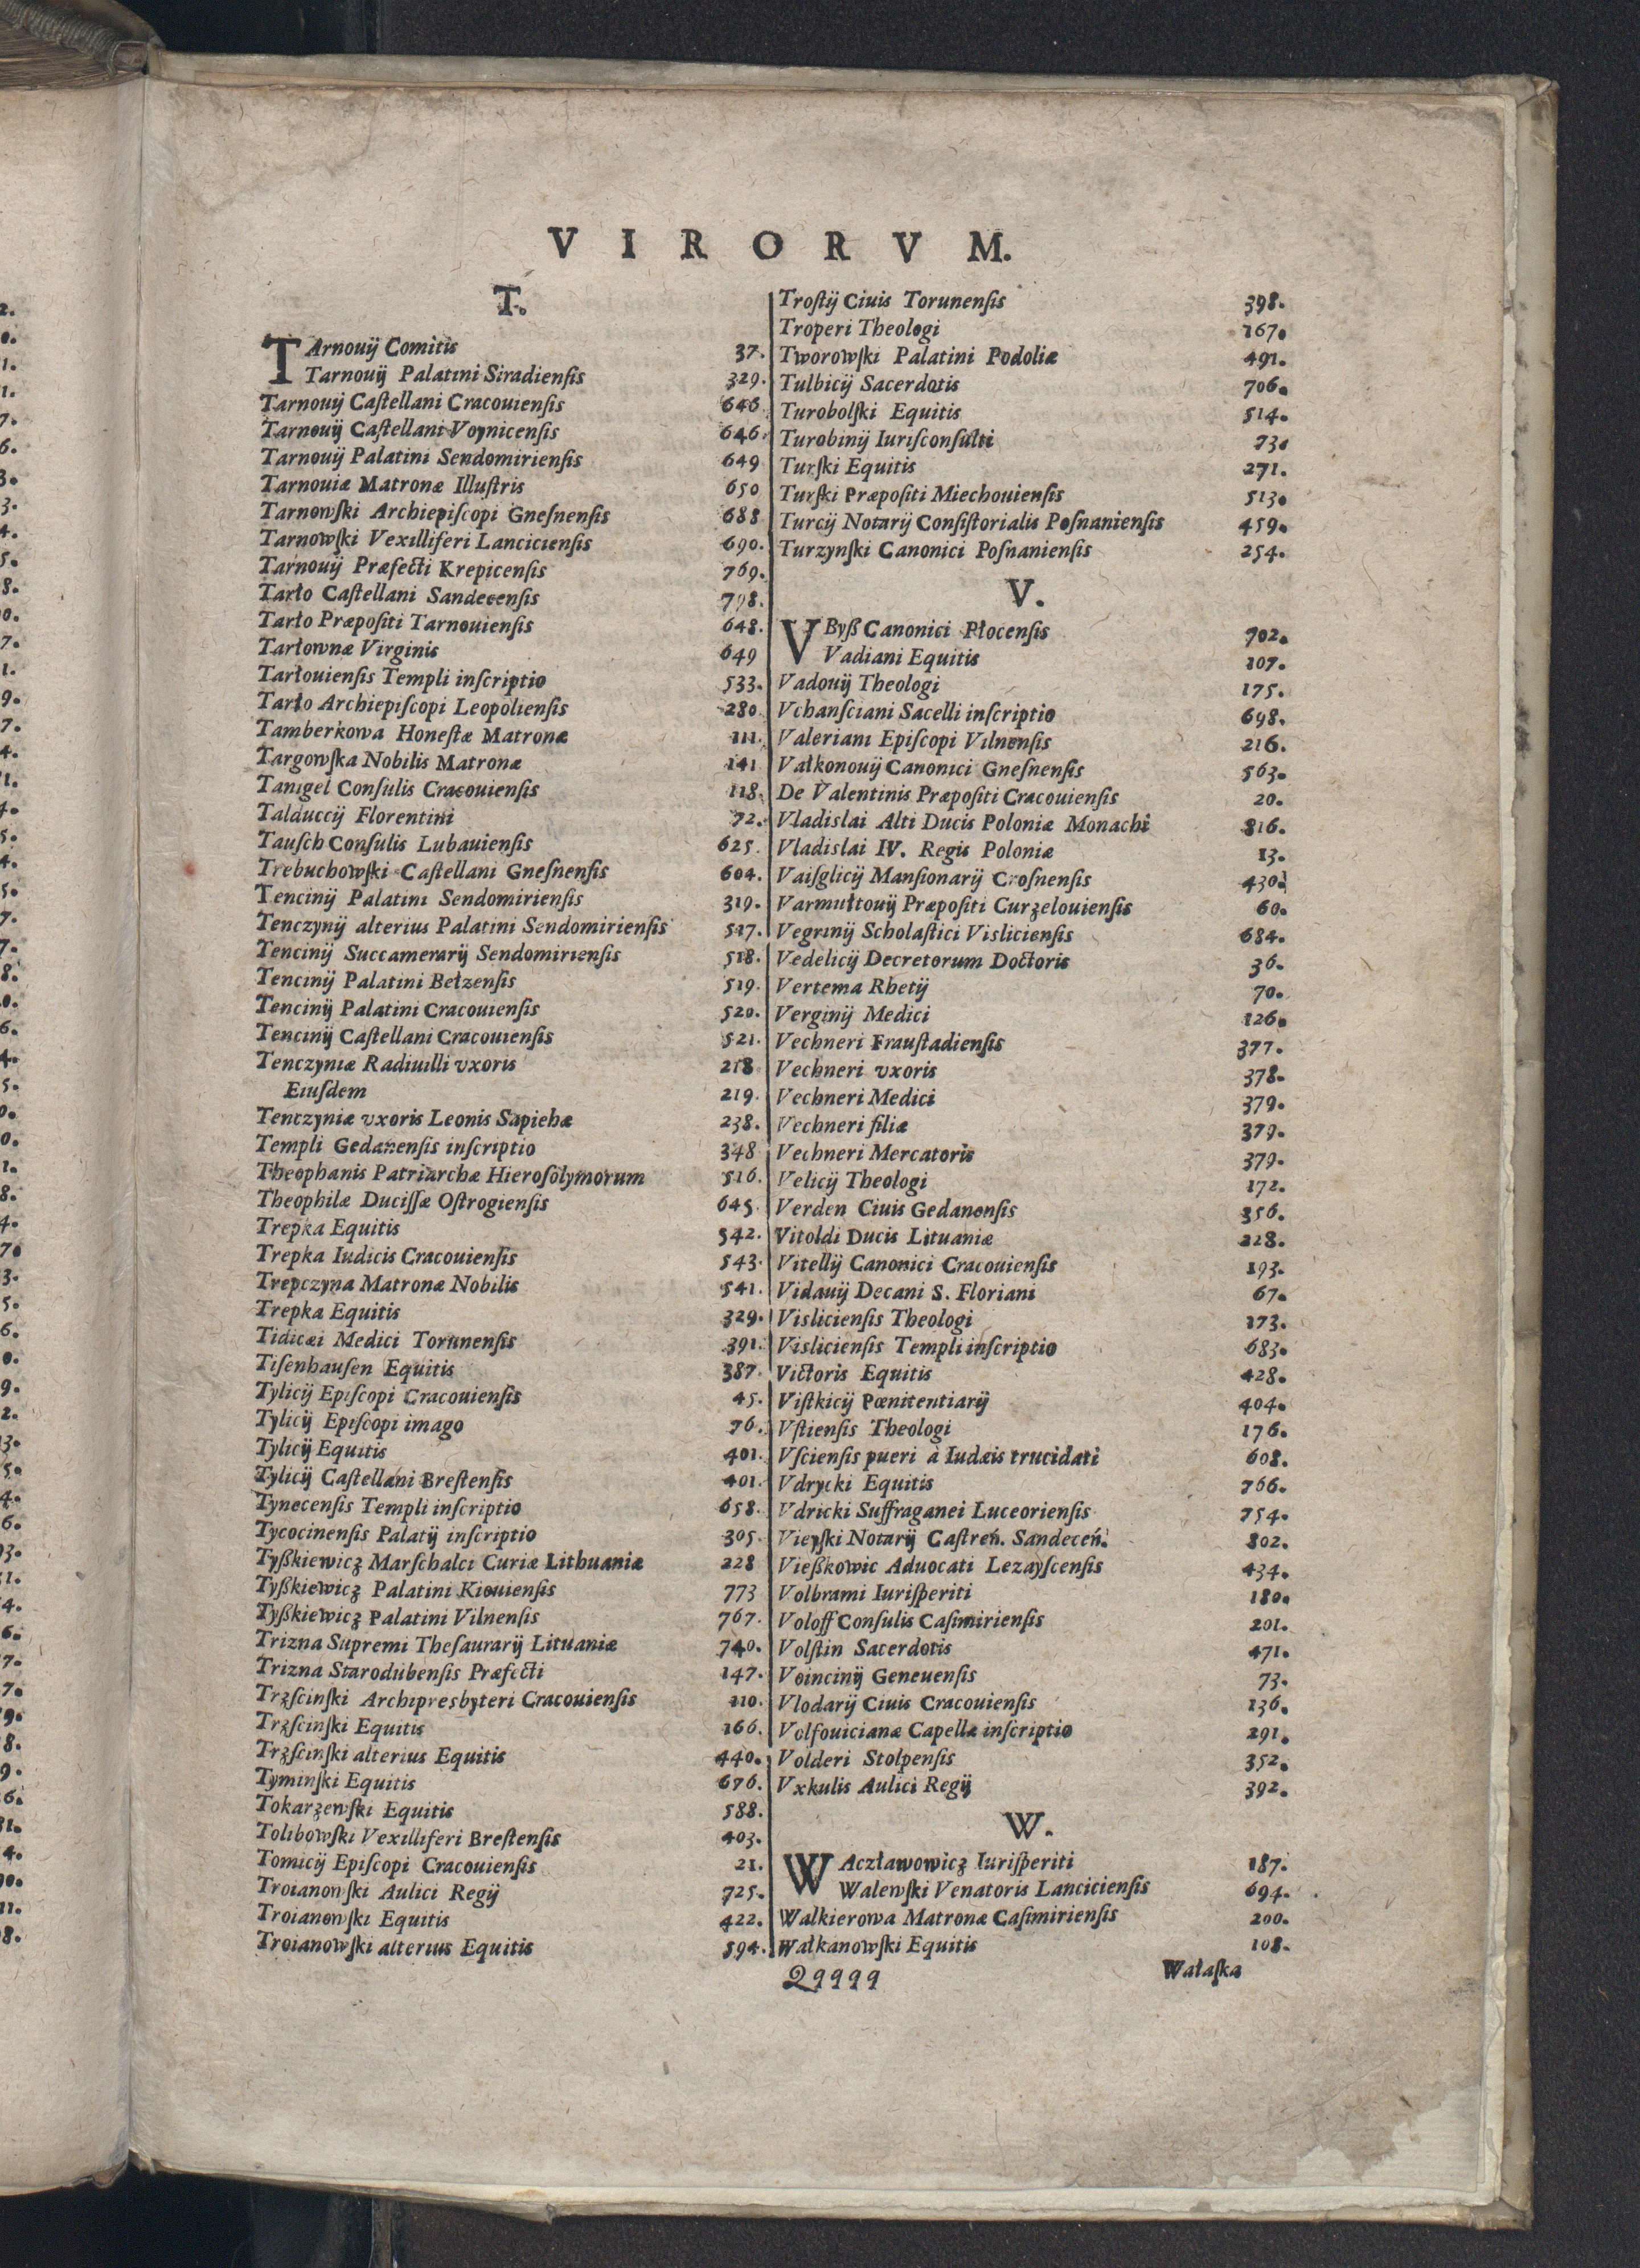 VIRORVM.
T.
TArnouij Comitis 37.
Tarnouij Palatini Siradiensis 329.
Tarnouij Caſtellani Cracouiensis 646
Tarnouij Caſtellani Voynicensis 646.
Tarnouij Palatini Sendomiriensis 649
Tarnouiæ Matronæ Illuſtris 650
Tarnowſki Archiepiſcopi Gneſnenſis 688
Tarnowſki Vexilliferi Lancicienſis 690.
Tarnouij Præfecti Krepicenſis 769.
Tarło Caſtellani Sandecenſis 798.
Tarło Præpoſiti Tarnouienſis 648.
Tarłownæ Virginis 649
Tarłouienſis Templi inſcriptio 533.
Tarło Archiepiſcopi Leopolienſis 280.
Tamberkowa Honeſtæ Matronæ 111.
Targowſka Nobilis Matronæ 141
Tanigel Conſulis Cracouienſis 118.
Talduccij Florentini 72.
Tauſch Conſulis Lubauienſis 625.
Trebuchowſki Caſtellani Gneſnenſis 604.
Tencinij Palatini Sendomirienſis 319.
Tenczynij alterius Palatini Sendomirienſis 517.
Tencinij Succamerarij Sendomirienſis 518.
Tencinij Palatini Bełzenſis 519.
Tencinij Palatini Cracouienſis 520.
Tencinij Caſtellani Cracouienſis 521.
Tenczyniæ Radiuilli vxoris 218
Eiuſdem 219.
Tenczyniæ vxoris Leonis Sapiehæ 238.
Templi Gedanenſis inſcriptio 348
Theophanis Patriarchæ Hieroſolymorum 516.
Theophilæ Duciſſæ Oſtrogienſis 645.
Trepka Equitis 542.
Trepka Iudicis Cracouienſis 543.
Trepczyna Matronæ Nobilis 541.
Trepka Equitis 329.
Tidicæi Medici Torunenſis 391.
Tiſenhauſen Equitis 387.
Tylicij Epiſcopi Cracouienſis 45.
Tylicij Epiſcopi imago 76.
Tylicij Equitis 401.
Tylicij Caſtellani Breſtenſis 401.
Tynecenſis Templi inſcriptio 658.
Tycocinenſis Palatij inſcriptio 305.
Tyßkiewicz Marſchalci Curiæ Lithuaniæ 228
Tyßkiewicz Palatini Kiouienſis 773
Tyßkiewicz Palatini Vilnenſis 767.
Trizna Supremi Theſaurarij Lituaniæ 740.
Trizna Starodubenſis Præfecti 147.
Trzſcinſki Archipresbyteri Cracouienſis 110.
Trzſcinſki Equitis 166.
Trzſcinſki alterius Equitis 440.
Tyminſki Equitis 676.
Tokarzewſki Equitis 588.
Tolibowſki Vexilliferi Breſtenſis 403.
Tomicij Epiſcopi Cracouienſis 21.
Troianowſki Aulici Regij 725.
Troianowſki Equitis 422.
Troianowſki alterius Equitis 594.
Troſtij Ciuis Torunenſis 398.
Troperi Theologi 167.
Tworowſki Palatini Podoliæ 491.
Tulbicij Sacerdotis 706.
Turobolſki Equitis 514.
Turobinij Iuriſconſulti 73.
Turſki Equitis 271.
Turſki Præpoſiti Miechouienſis 513.
Turcij Notarij Conſiſtorialis Poſnanienſis 459.
Turzynſki Canonici Poſnanienſis 254.
V.
VByß Canonici Płocenſis 702.
Vadiani Equitis 107.
Vadouij Theologi 175.
Vchanſciani Sacelli inſcriptio 698.
Valeriani Epiſcopi Vilnenſis 216.
Vałkonouij Canonici Gneſnenſis 563.
De Valentinis Præpoſiti Cracouienſis 20.
Vladislai Alti Ducis Poloniæ Monachi 816.
Vladislai IV. Regis Poloniæ 13.
Vaiſglicij Manſionarij Croſnenſis 430.
Varmułtouij Præpoſiti Curzelouienſis 60.
Vegrinij Scholaſtici Viſlicienſis 684.
Vedelicij Decretorum Doctoris 36.
Vertema Rhetij 70.
Verginij Medici 126.
Vechneri Frauſtadienſis 377.
Vechneri vxoris 378.
Vechneri Medici 379.
Vechneri filiæ 379.
Vechneri Mercatoris 379.
Velicij Theologi 172.
Verden Ciuis Gedanenſis 356.
Vitoldi Ducis Lituaniæ 228.
Vitellij Canonici Cracouienſis 193.
Vidauij Decani S. Floriani 67.
Vislicienſis Theologi 173.
Vislicienſis Templi inſcriptio 683.
Victoris Equitis 428.
Viſtkicij Pœnitentiarij 404.
Vſtienſis Theologi 176.
Vſcienſis pueri à Iudæis trucidati 608.
Vdrycki Equitis 766.
Vdricki Suffraganei Luceorienſis 754.
Vieyſki Notarij Caſtreń. Sandeceń. 802.
Vießkowic Aduocati Lezayſcenſis 434.
Volbrami Iuriſperiti 180.
Voloff Conſulis Caſimirienſis 201.
Volſtin Sacerdotis 471.
Voincinij Geneuenſis 73.
Vlodarij Ciuis Cracouienſis 136.
Volfouicianæ Capellæ inſcriptio 291.
Volderi Stolpenſis 352.
Vxkulis Aulici Regij 392.
W.
WAczławowicz Iuriſperiti 187.
Walewſki Venatoris Lancicienſis 694.
Walkierowa Matronæ Caſimirienſis 200.
Wałkanowſki Equitis 108.
Qqqqq
Wałaſka